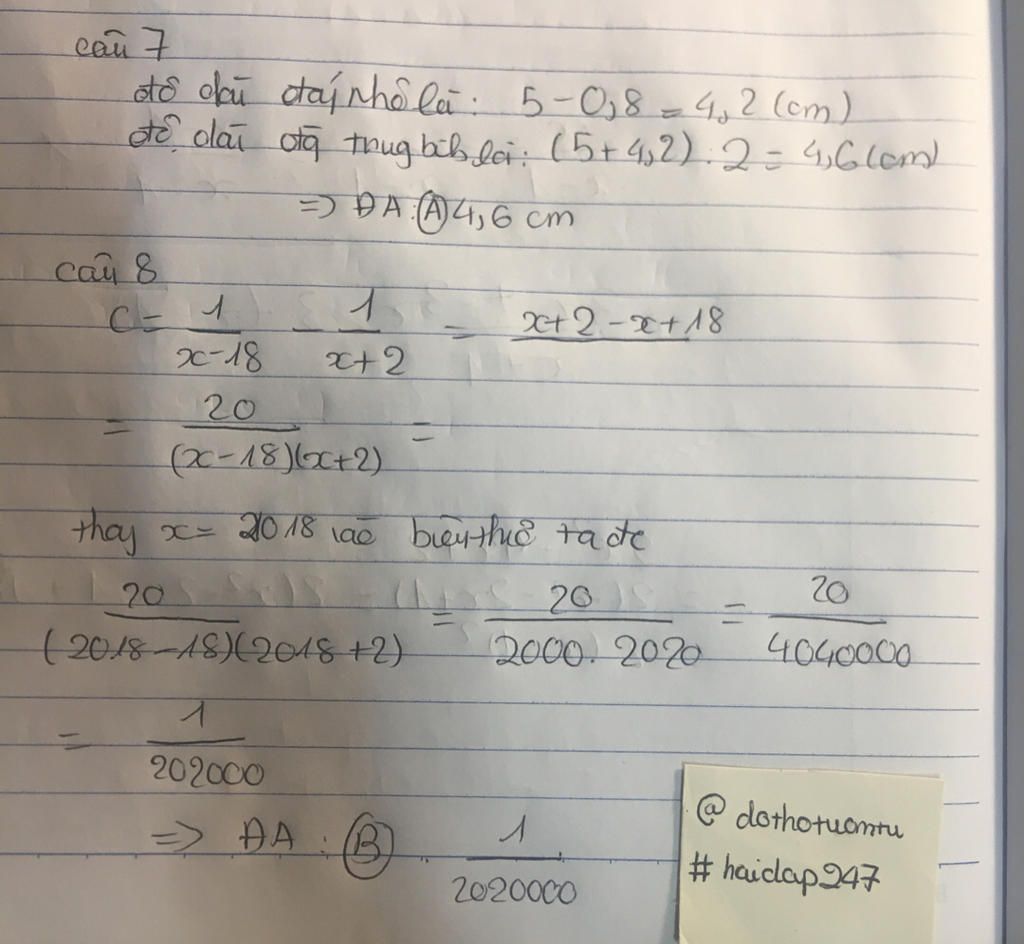 câu 7
độ dài đáy nhỏ là: 5 - 0,8 = 4,2 (cm)
độ dài đg trug bìh là: (5 + 4,2) : 2 = 4,6 (cm)
=> ĐA: (A) 4,6 cm
câu 8
C = 1/(x-18) - 1/(x+2) = x+2-x+18
= 20/((x-18)(x+2)) =
thay x = 2018 vào biểu thức ta đc
20/((2018-18)(2018+2)) = 20/(2000. 2020) = 20/4040000
= 1/202000
=> ĐA : (B) 1/2020000
@ dothotuomtu
# haidap247